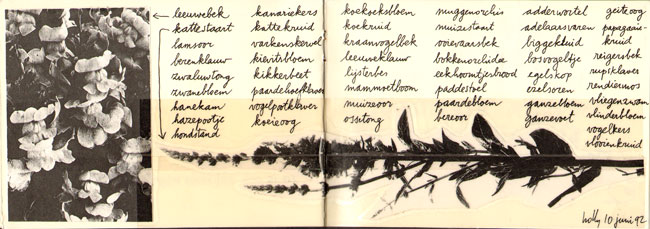 leeuwebek
kattestaart
lamsoor
berenklauw
zwaluwtong
zwanebloem
hanekam
hazepootje
hondstand
kanariekers
kattekruid
varkenskervel
kievitsbloem
kikkerbeet
paardehoefklaver
vogelpootklaver
koeieoog
koekoeksbloem
koekruid
kraanvogelbek
leeuweklauw
lijsterbes
mammoetboom
muizeoor
ossetong
muggenorchis
muizestaart
ooievaarsbek
bokkenorchidee
eekhoorntjesbrood
paddestoel
paardebloem
bereoor
adderwortel
adelaarsvaren
biggekruid
bosvogeltje
egelskop
ezelsoren
ganzebloem
ganzevoet
geiteoog
papegaaie-
kruid
reigersbek
rupsklaver
rendiermos
vliegenzwam
vlinderbloem
vogelkers
vlooienkruid
holly 10 juni 92